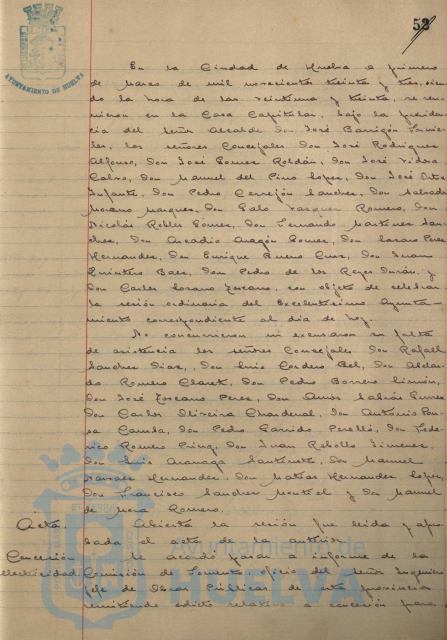 52
AYUNTAMIENTO DE HUELVA
En la Ciudad de Huelva a primero
de Marzo de mil novecientos treinta y tres, sien
do la hora de las veintiuna y treinta, se reu
nieron en la Casa Capitular, bajo la presiden
cia del Señor Alcalde Don José Barrigón
los señores Concejales Don José Rodríguez
Alfonso, Don José Gomez Roldán, Don José
Calvo, Don Manuel del Pino Lopez, Don José
Infante, Don Pedro Cerrejón Sanchez, Don Salvador
Moreno Marquez, Don Galo Vazquez Romero, Don
Nicolás Robles Gomez, Don Fernando Martinez San
chez, Don Arcadio Aragón Gomez, Don
Hernandez, Don Enrique Bueno Cruz, Don Juan
Quintero Baez, Don Pedro de los Reyes Durán, y
Don Carlos Lozano Toscano, con objeto de celebrar
la sesión ordinaria del Excelentísimo Ayunta-
miento correspondiente al día de hoy.
No concurrieron ni excusaron su falta
de asistencia los señores Concejales Don Rafael
Sanchez Diaz, Don Luis Cordero Bel, Don Abelar
do Romero Claret, Don Pedro Borrero Limón,
Don José Toscano Perez, Don Amós Sabrás Gurrea
Don Carlos Oliveira Chardenal, Don Antonio Pon
ce Don Pedro Garrido Perelló, Don Fede-
rico Romero Don Juan Rebollo Jimenez
Don Luis Don Manuel
Hernandez, Don Matias Hernandez Lopez,
Don Francisco Sanchez Montiel y Don Manuel
de Mora Romero.
Acta. Abierta la sesión fue leida y apro
bada el acta de la anterior.
Concesión Se acordó pasar a informe de la
electricidad Comisión de Fomento oficio del Señor Ingeniero
Jefe de Obras Públicas de esta provincia
remitiendo edicto relativo a concesión para
Ayuntamiento de
HUELVA